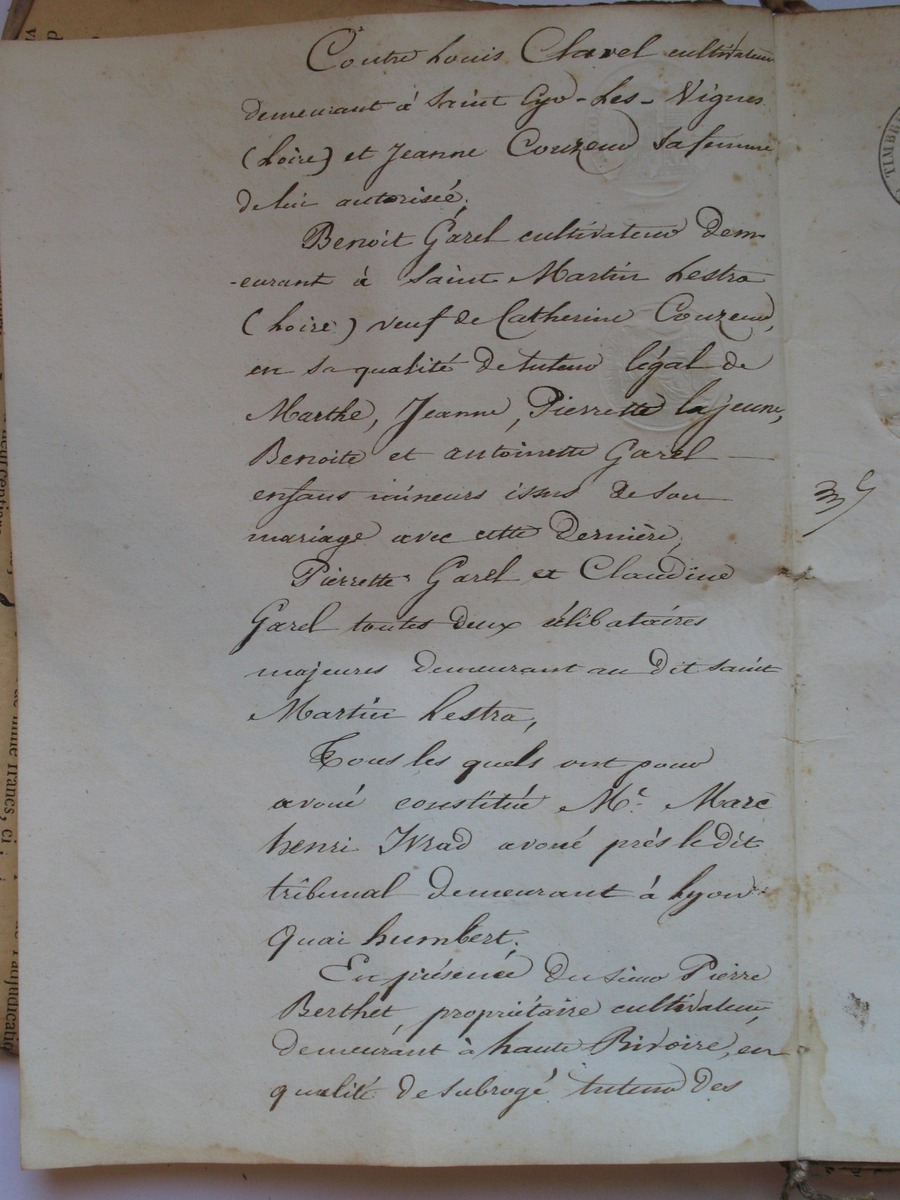 Contre Louis Clavel cultivateur
demeurant à Saint Cyr-Les-Vignes
(Loire) et Jeanne Couzeur sa femme
de lui autorisée,
Benoit Garel cultivateur dem-
-eurant à Saint Martin Lestra
(Loire) veuf de Catherine Couzeur,
en sa qualité de tuteur légal de
Marthe, Jeanne, Pierrette la jeune,
Benoite et antoinette Garel
enfans mineurs issus de son
mariage avec cette dernière,
Pierrette Garel et Claudine
Garel toutes deux célibataires
majeures demeurant au dit saint
Martin Lestra,
Tous les quels ont pour
avoué constitué Mr. Marc
henri Yvrad avoué près le dit
tribunal demeurant à Lyon
quai humbert.
En présence du sieur Pierre
Berthet propriétaire cultivateur,
demeurant à haute Rivoire, en
qualité de subrogé tuteur des
TIMBRE
de mille francs, ci